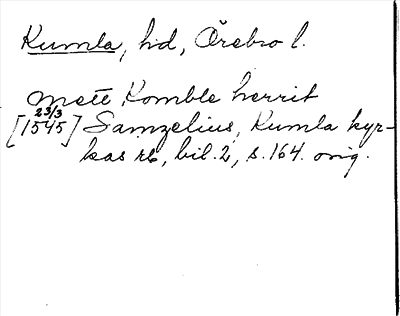 Kumla, hd, Örebro l.
mett Komble herrit
23/3
[1545] Samzelius, Kumla kyr-
kas rb, bil. 2, s. 164. orig.